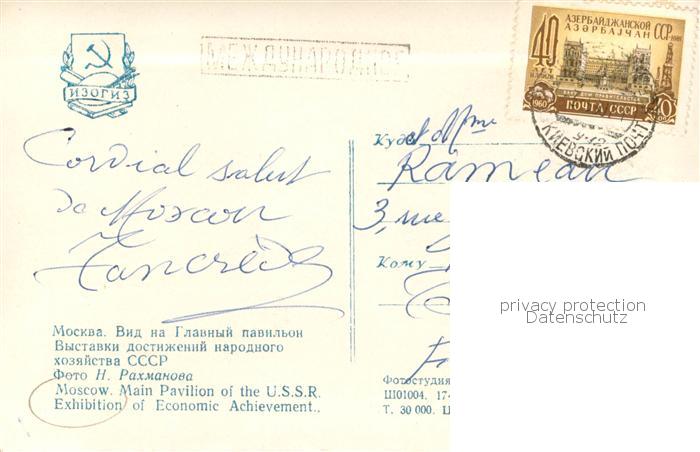 ИЗОГИЗ
МЕЖДУНАРОДНОЕ
АЗЕРБАЙДЖАНСКОЙ ССР
АЗӘРБАЈҸАН ССР
40
ЛЕТ
1960 ПОЧТА СССР 40
КИЕВСКИЙ ПОЧТ
Cordial salut
de Moscou
Tancrède
Куда
Mme
Rameau
3, rue
Кому
Москва. Вид на Главный павильон
Выставки достижений народного
хозяйства СССР
Фото Н. Рахманова
Moscow. Main Pavilion of the U.S.S.R.
Exhibition of Economic Achievement.,
Фотостудия
Ш01004. 17-
Т. 30 000. Ц
privacy protection
Datenschutz